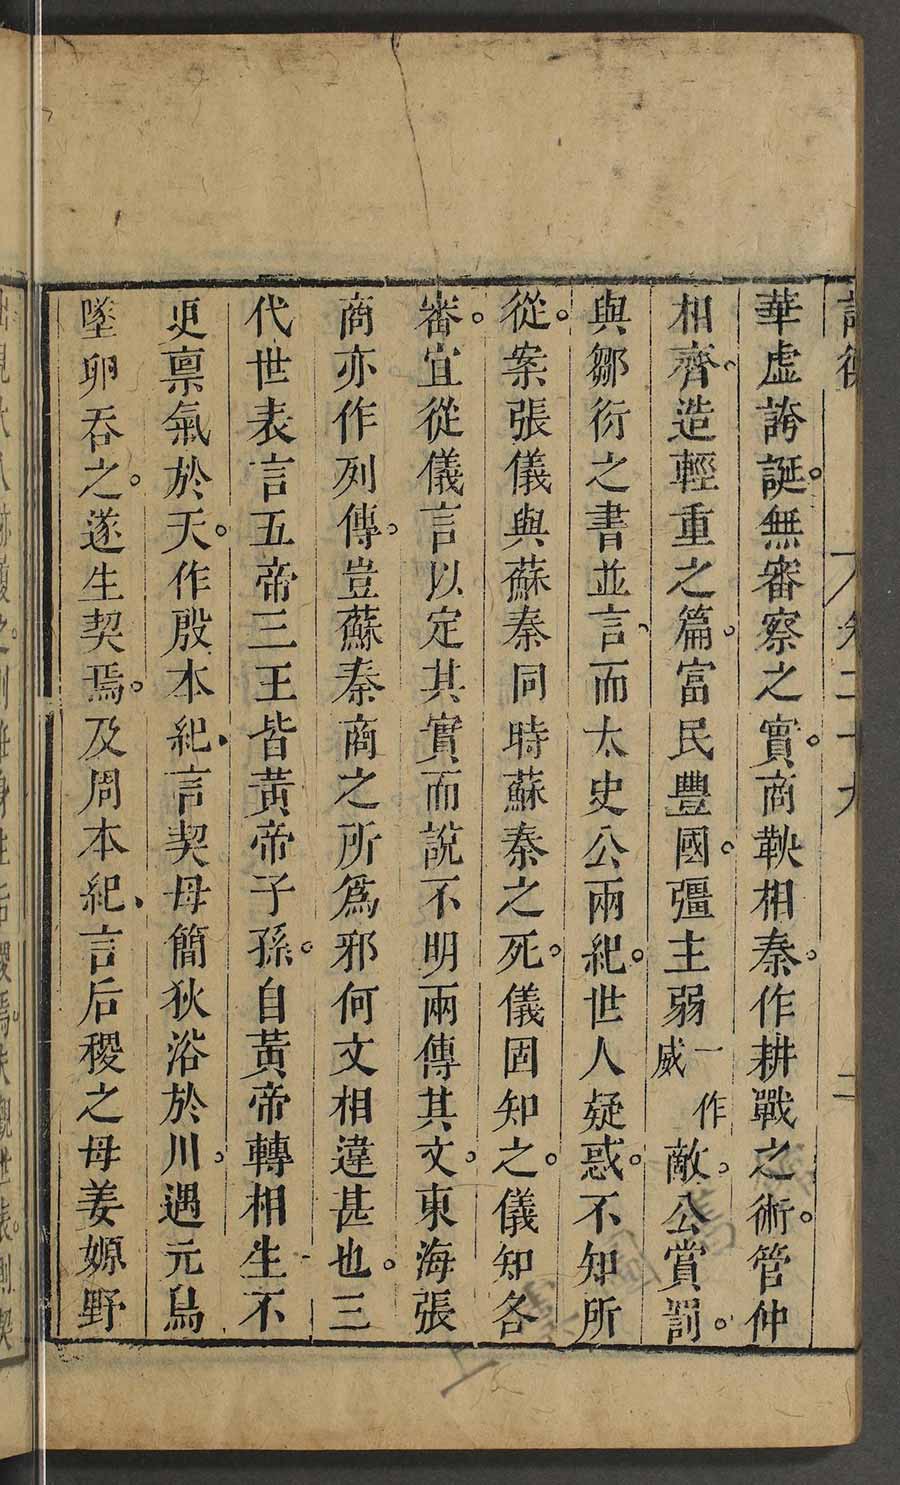 論衡 卷二十九 二
華虛誇誕。無審察之實。商鞅相秦。作耕戰之術。管仲
相齊。造輕重之篇。富民豐國。彊主弱一作威敵。公賞罰。
與鄒衍之書並言、而太史公兩紀。世人疑惑。不知所
從。案張儀與蘇秦同時蘇秦之死。儀固知之。儀知各
審。宜從儀言以定其實而說不明兩傳其文。東海張
商亦作列傳。豈蘇秦商之所爲邪何文相違甚也。三
代世表言五帝三王皆黃帝子孫。自黃帝轉相生不
更稟氣於天。作殷本紀、言契母簡狄浴於川。遇元鳥
墜卵吞之。遂生契焉。及周本紀、言后稷之母姜嫄野